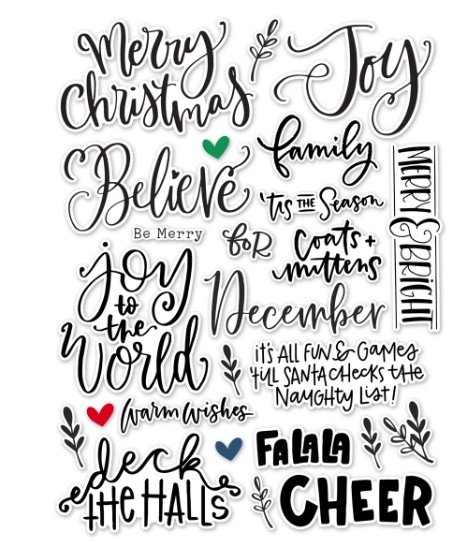 Merry
Christmas
Joy
Believe
Be Merry
family
'tis THE Season
for
Coats +
mittens
MERRY & BRIGHT
joy
to
the
World
December
it's ALL FUN & GAMES
'till SANTA CHECKS the
NAUGHTY LIST!
warm wishes
deck
THE HALLS
FALALA
CHEER